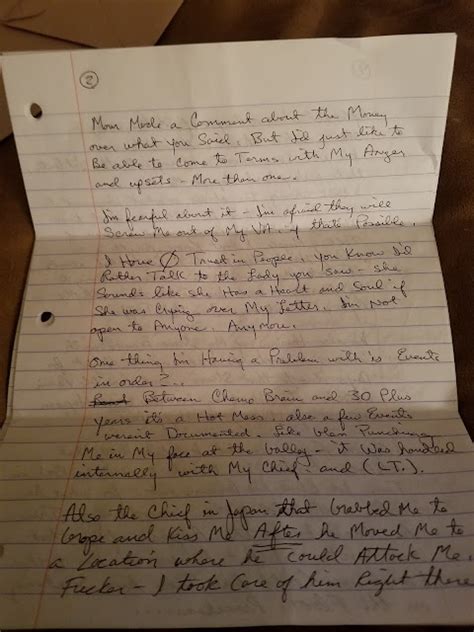 2
Mom Made a Comment about the Money
over what you Said. But I'd just like to
Be able to Come to Terms with My Anger
and upsets - More than one.
I'm fearful about it - I'm afraid they will
Screw Me out of My Vot. if that's Possible.
I Have Ø Trust in People, you Know I'd
Rather Talk to the Lady you saw - she
Sounds like she Has a Heart and Soul if
She was Crying over My Letter. I'm Not
open to Anyone. Anymore.
One thing I'm Having a Problem with is Events
in order?..
Between Chemo Brain and 30 Plus
years it's a Hot Mess. also a few Events
weren't Documented. Like Punching
Me in My face at the Galley - it was handled
internally with My Chief and (LT.).
Also the Chief in Japan that Grabbed Me to
Grope and Kiss Me After he Moved Me to
a Location where he Could Attack Me.
Fucker - I took Care of him Right there